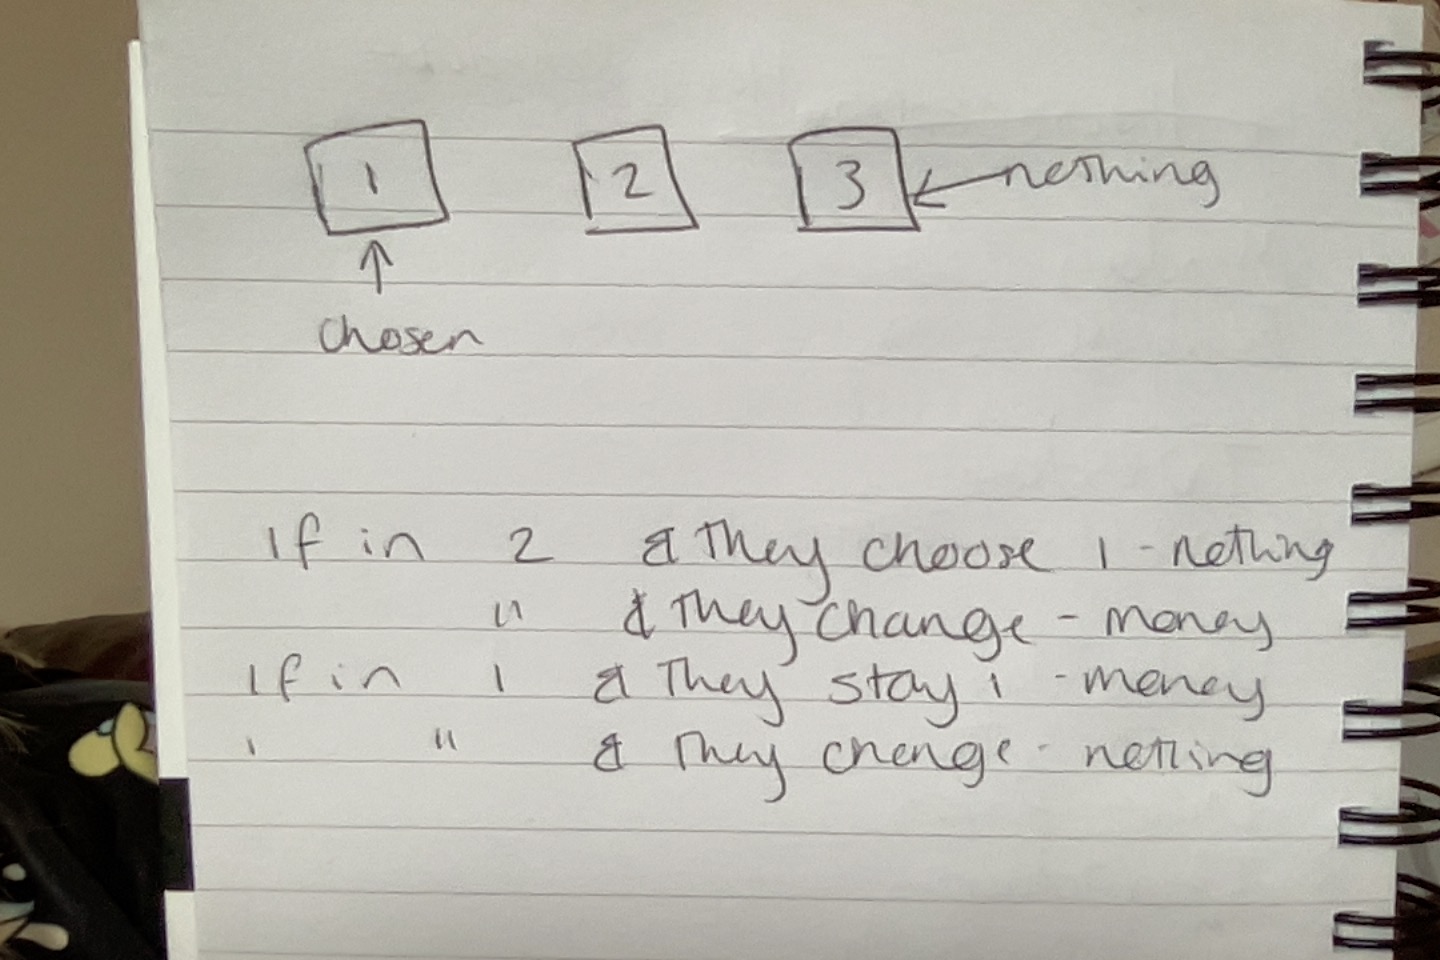 1 2 3 nothing
chosen
If in 2 & they choose 1 - nothing
" & they change - money
If in 1 & they stay 1 - money
" & they change - nothing